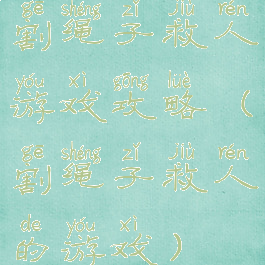 gē shéng zǐ jiù rén
割绳子救人
yóu xì gōng lüè
游戏攻略（
gē shéng zǐ jiù rén
割绳子救人
de yóu xì
的游戏）